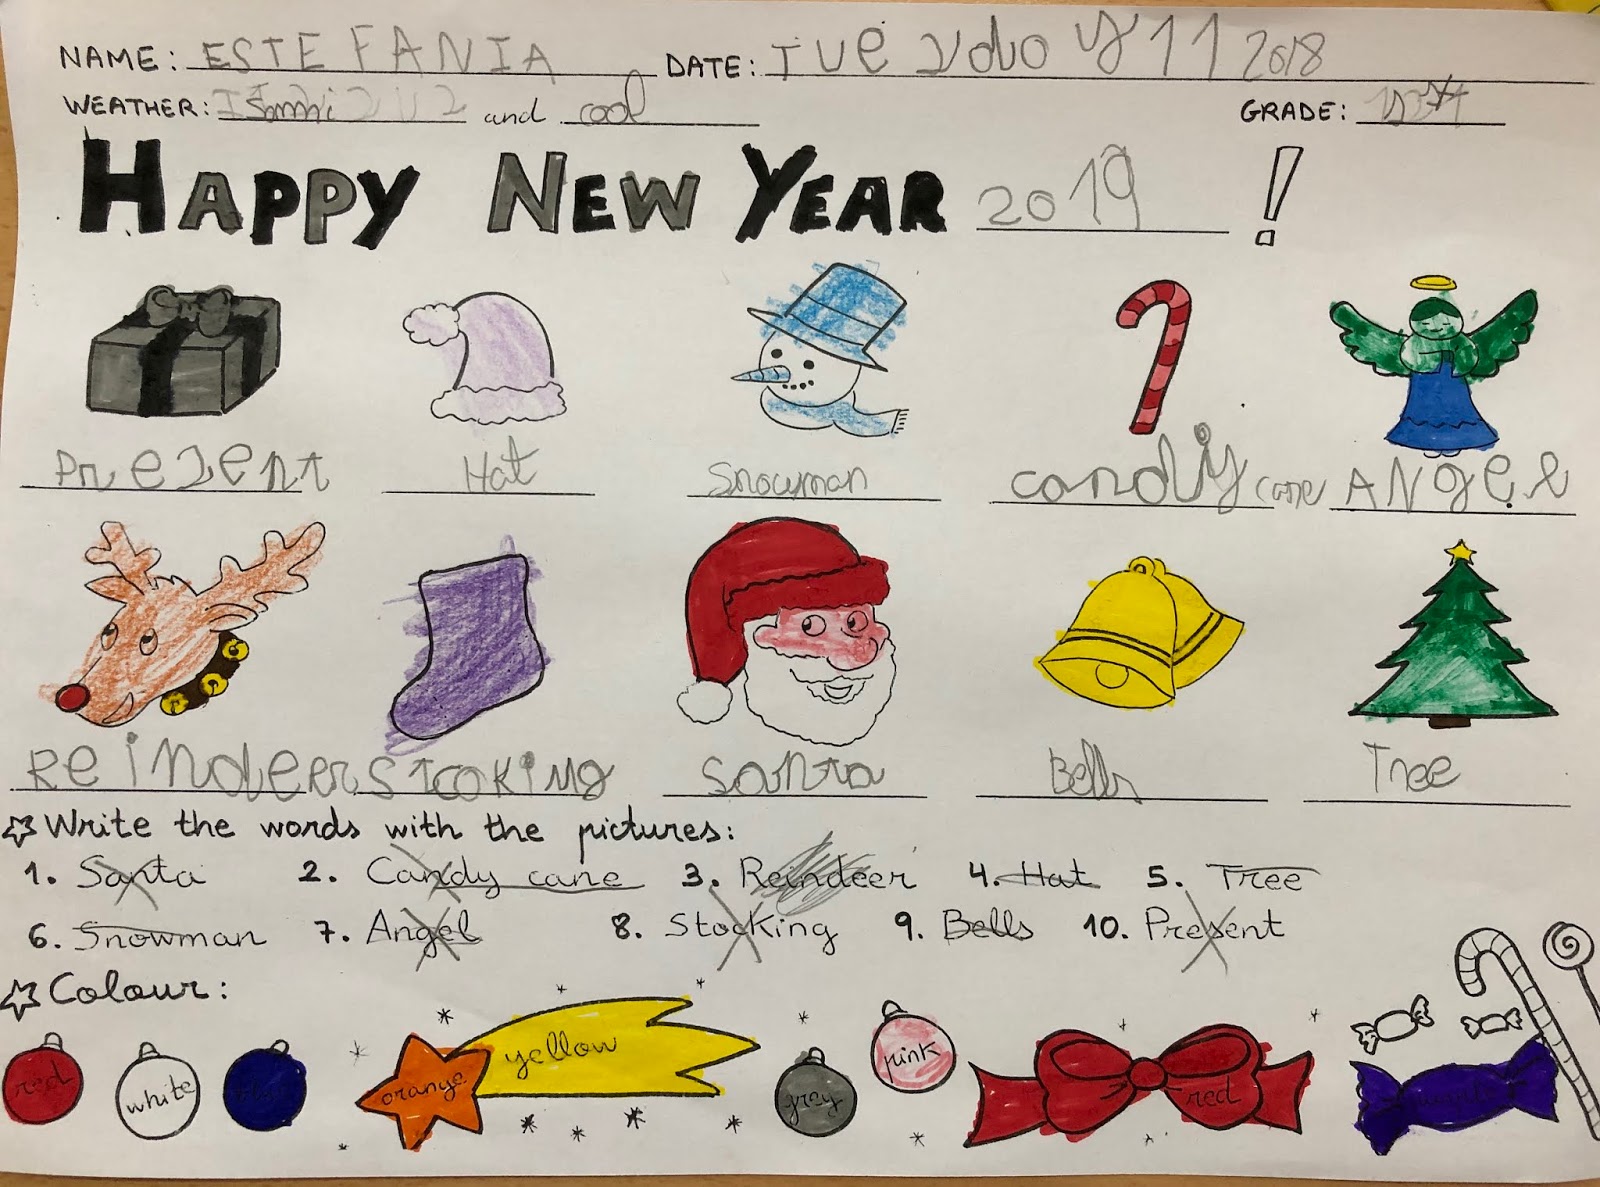 NAME: ESTEFANIA DATE: Tuesday 11 2018
WEATHER: and cool GRADE:
HAPPY NEW YEAR 2019 !
Present Hat Snowman Candy cane ANgel
Reindeer Stocking Santa Bells Tree
Write the words with the pictures:
1. Santa 2. Candy cane 3. Reindeer 4. Hat 5. Tree
6. Snowman 7. Angel 8. Stocking 9. Bells 10. Present
Colour:
red white blue orange yellow grey pink red purple